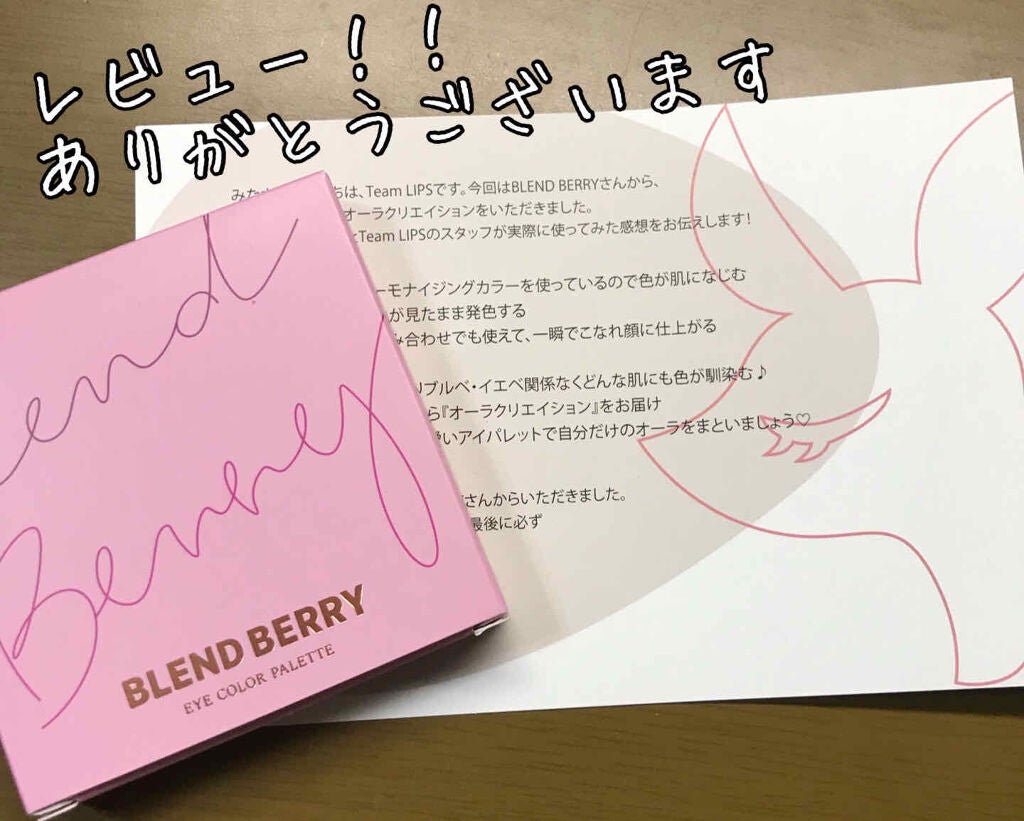 レビュー！！
ありがとうございます
は、Team LIPSです。今回はBLEND BERRYさんから、
オーラクリエイションをいただきました。
Team LIPSのスタッフが実際に使ってみた感想をお伝えします！
ーモナイジングカラーを使っているので色が肌になじむ
が見たまま発色する
み合わせでも使えて、一瞬でこなれ顔に仕上がる
ブルベ・イエベ関係なくどんな肌にも色が馴染む♪
ら『オーラクリエイション』をお届け
いアイパレットで自分だけのオーラをまといましょう♡
さんからいただきました。
最後に必ず
end
Berry
BLEND BERRY
EYE COLOR PALETTE